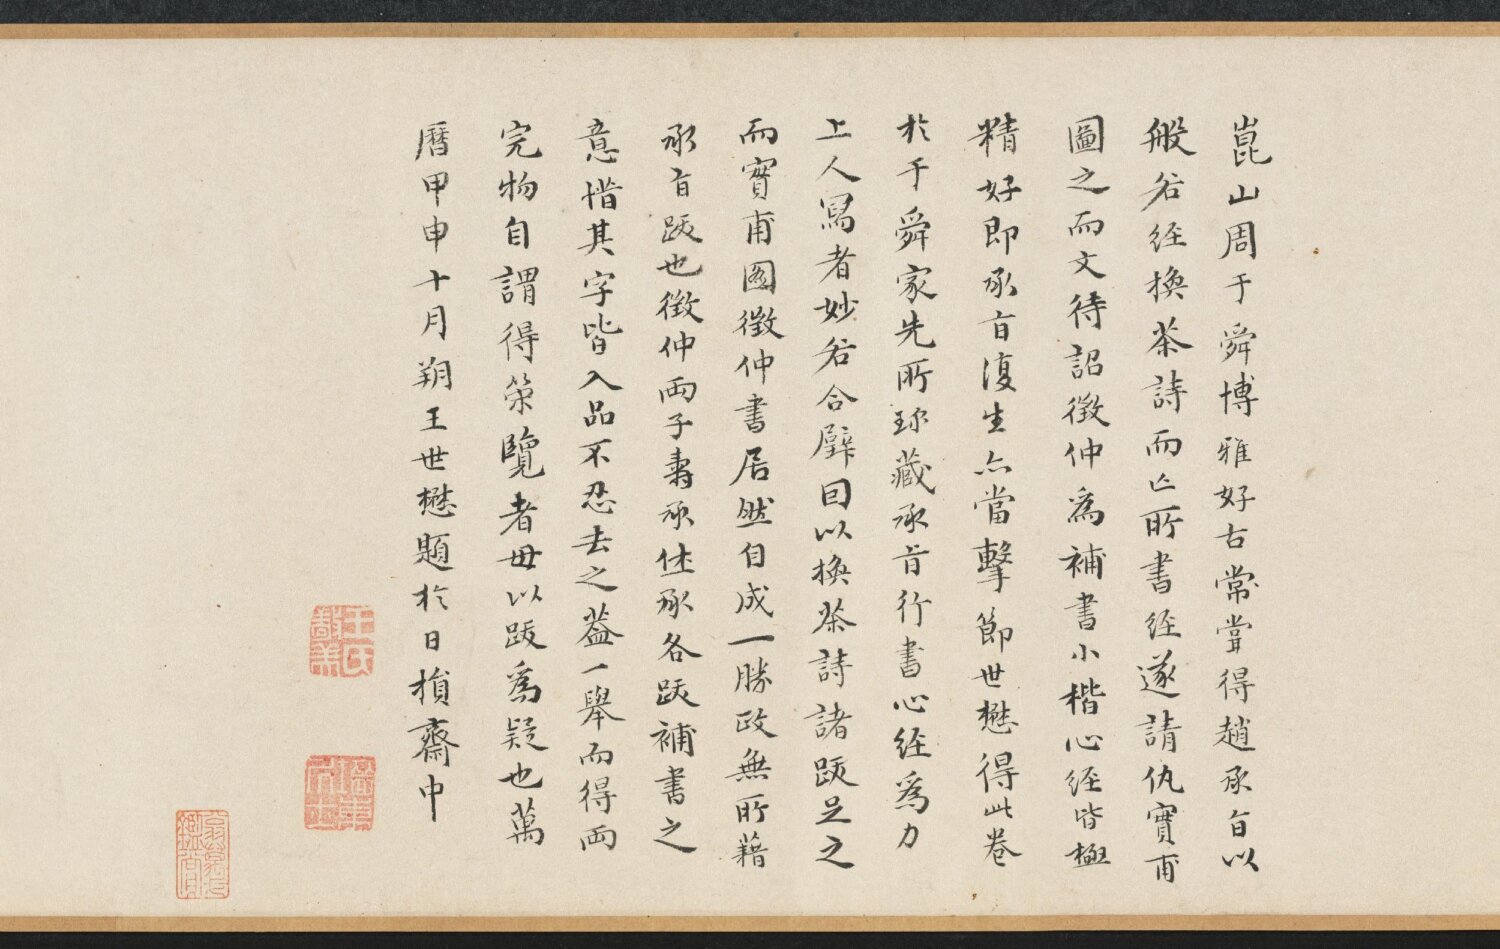 崑山周于舜博雅好古常嘗得趙承旨以
般若經換茶詩而亡所書經遂請仇實甫
圖之而文待詔徵仲為補書小楷心經皆極
精好即承旨復生亦當擊節世懋得此卷
於于舜家先所珎藏承旨行書心經為力
上人寫者妙若合璧囙以換茶詩諸跋足之
而實甫圖徵仲書居然自成一勝政無所藉
承旨跋也徵仲兩子壽承休承各跋補書之
意惜其字皆入品不忍去之葢一舉而得両
完物自謂得策覽者毋以跋為疑也萬
曆甲申十月朔王世懋題於日損齋中
王氏敬美